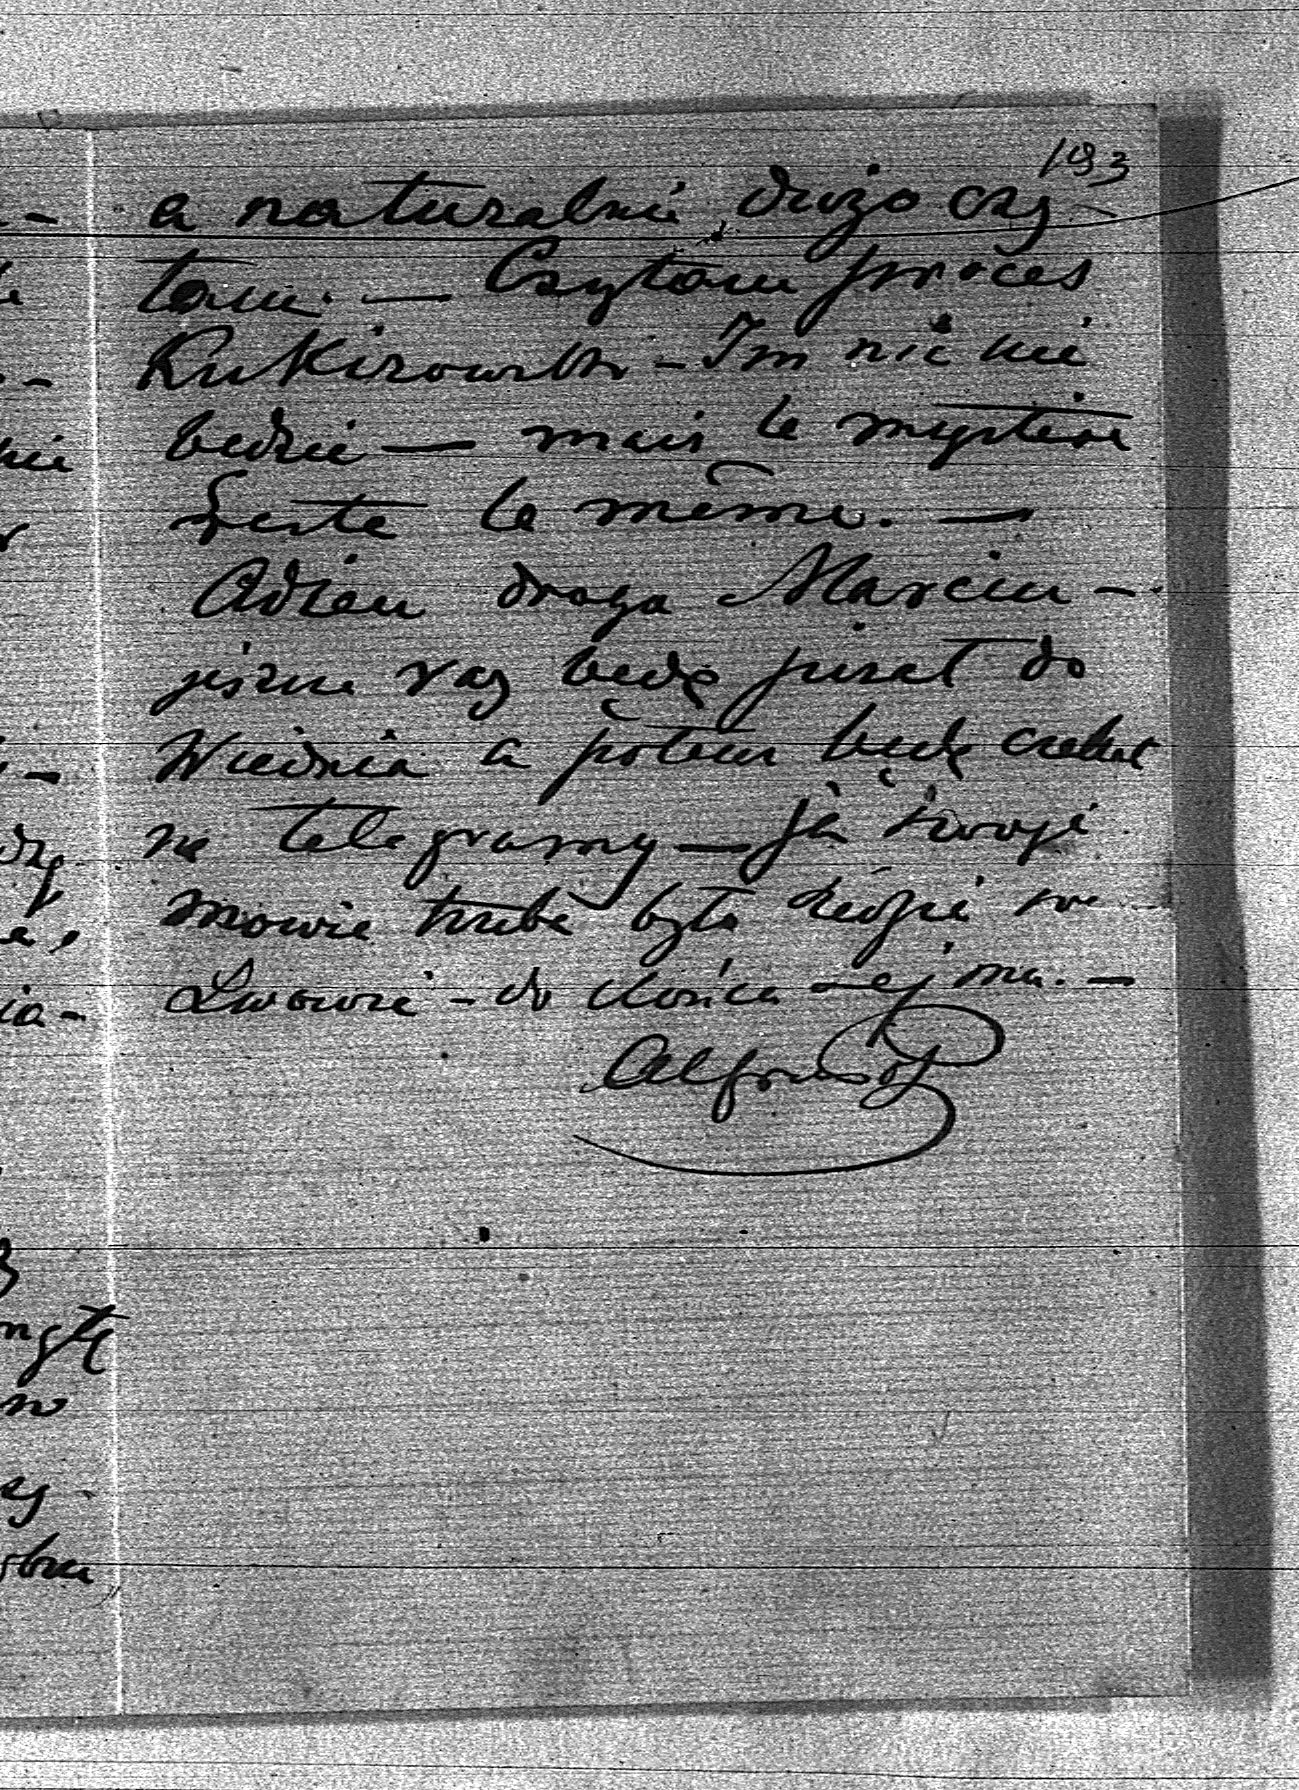 193
a naturalnie dużo czy-
tam. — Czytam proces
Kukizowski - Im nic nie
bedzie — mais le mystère
reste le même. —
Adieu droga Marciu -
jeszcze raz będę pisał do
Wiednia a potem będę czekał
na telegramy — ja swoje
mowie trzeba było siedzieć we
Lwowie - do końca
Alfred